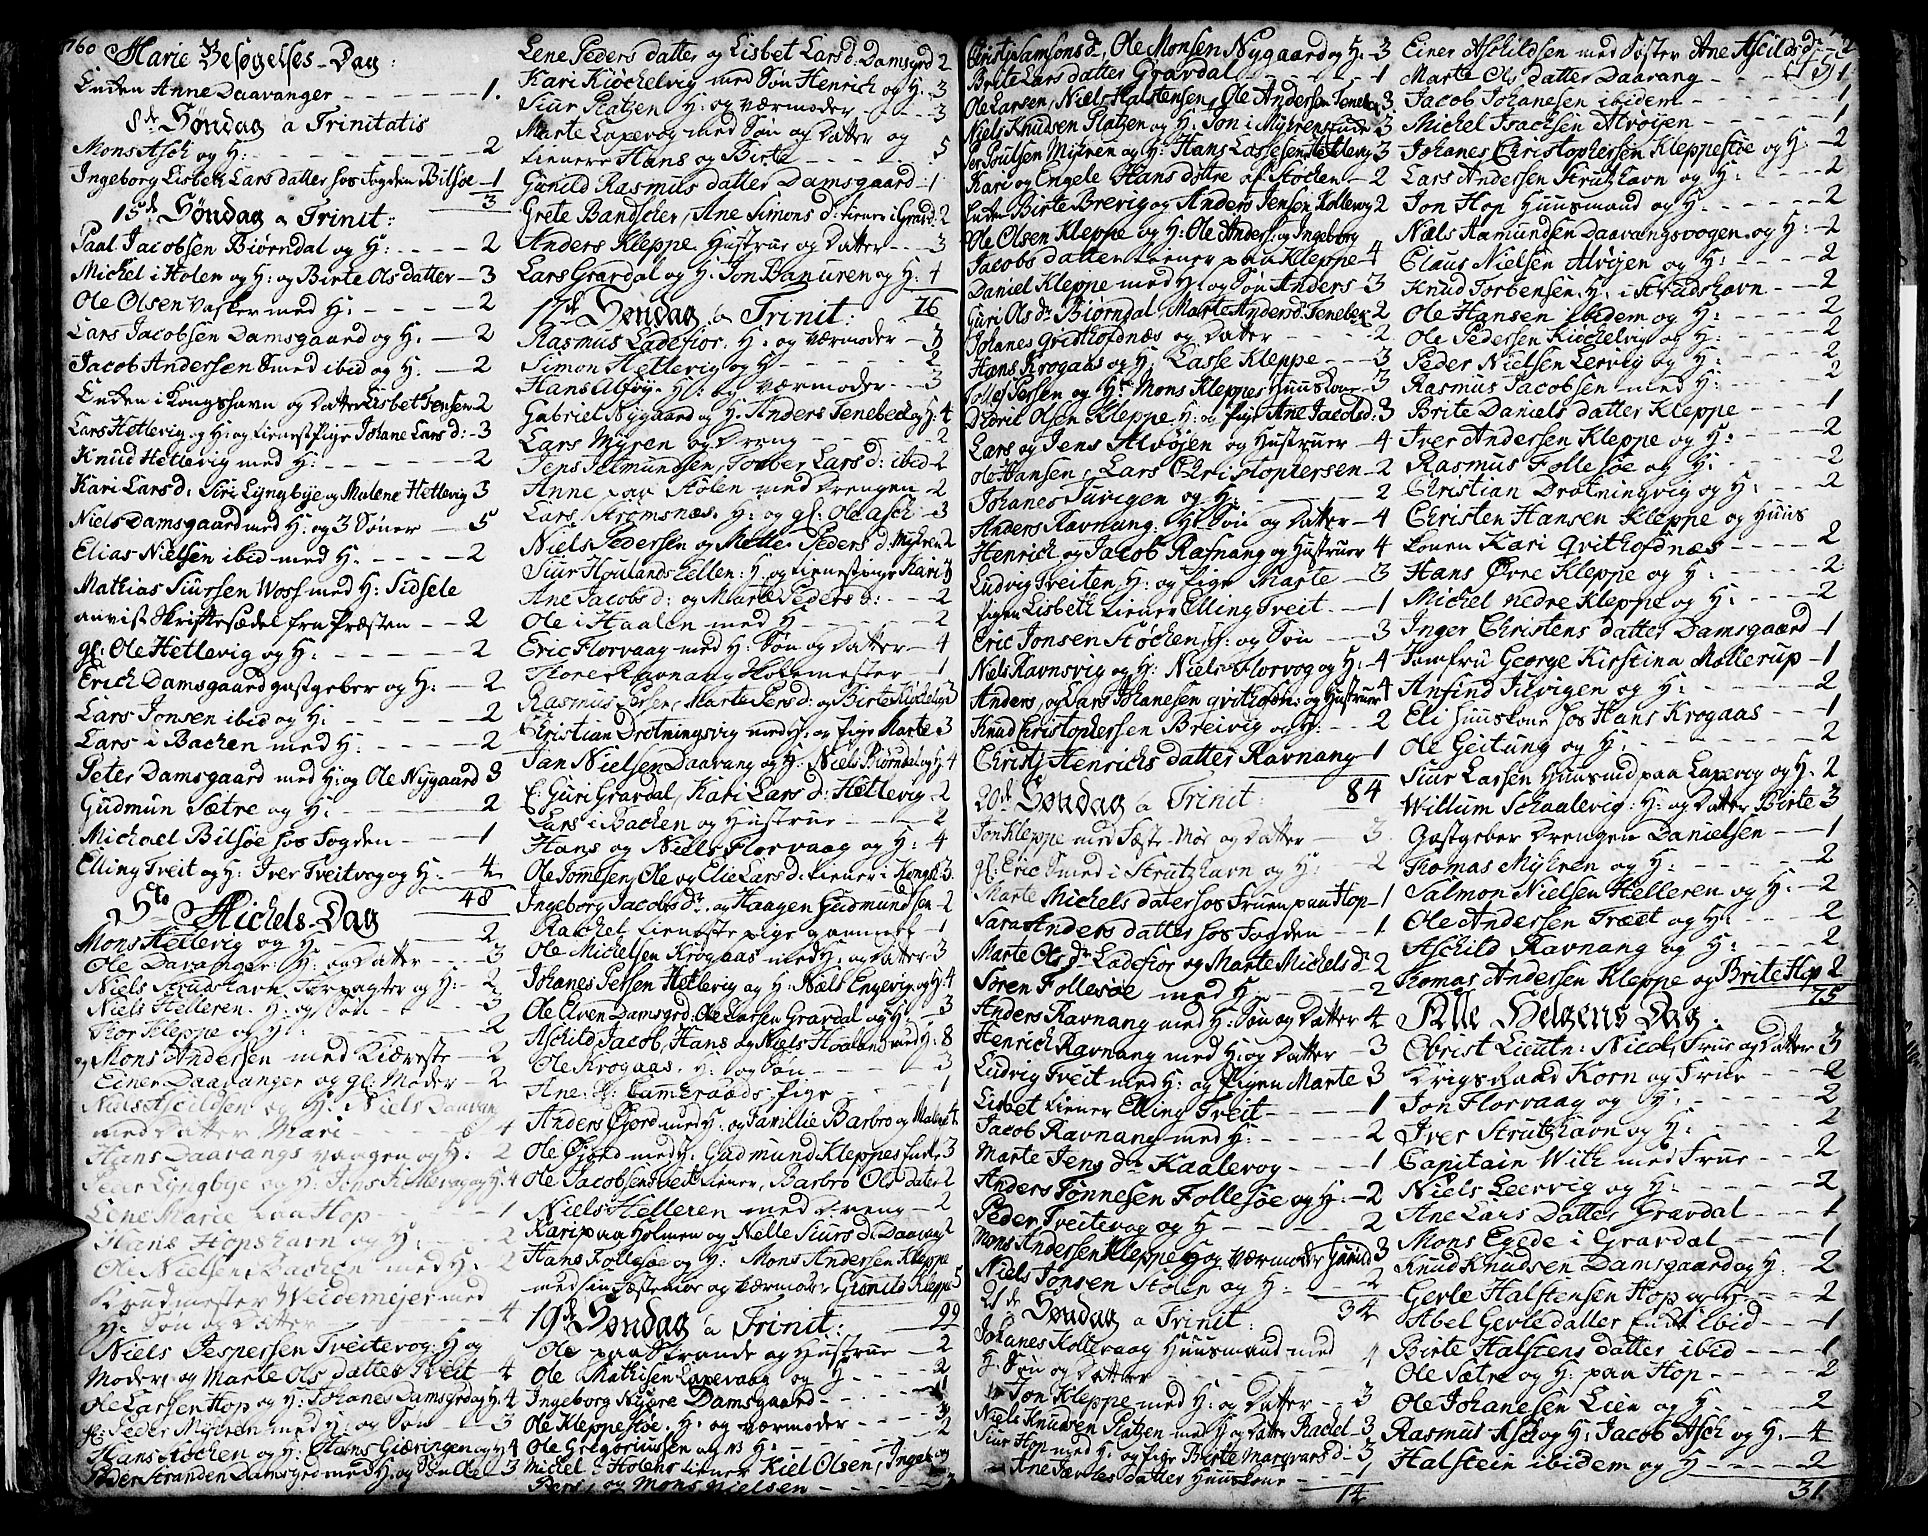 1760 Marie Besøgelses-Dag:
Enken Anne Daavanger - - - - - 1.
8de Søndag a Trinitatis
Mons Asch og H: - - - - - - - 2
Ingeborg Lisbeth Lars datter hos Fogden Bilsøe - 1
3
15de Søndag a Trinit:
Paal Jacobsen Biørndal og H: - - - - 2
Michel i Holen og H: og Birte Ols datter - 3
Ole Olsen Vasker med H: - - - - - 2
Lars Jacobsen Damsgaard og H: - - 2
Jacob Andersen Smed ibid og H: - - 2
Enken i Kongshavn og Datter Lisbet Jensen 2
Lars Hetlevig og H: og tienestPige Johane Lars d: - 3
Knud Hetlevig med H: - - - - - 2
Kari Lars d: Siri Lyngbye og Malene Hetlevig 3
Niels Damsgaard med H: og 3 Sønner - - 5
Elias Nielsen ibid med H: - - - - 2
Mathias Siursen Woss med H: Sidsele
anvist Skriftesædel fra Præsten - - 2
gl: Ole Hetlevig og H: - - - - - - 2
Erich Damsgaard gastgeber og H: - - 2
Lars Jonsen ibid og H: - - - - - 2
Lars i Bachen med H: - - - - - 2
Peter Damsgaard med H: og Ole Nygaard 3
Gudmun Sætre og H: - - - - - - 2
Michael Bilsøe hos Fogden - - - - 1
Elling Tveit og H: Iver Tveitvog og H: - 4
48
Sto Michels-Dag
Mons Hetlevig og H: - - - - - - 2
Ole Daavanger H: og Datter - - - 3
Niels Strudshavn Forpagter og H: - 2
Niels Helleren H: og Søn - - - - 3
Thor Kleppe og H: - - - - - - 2
og Mons Andersen med Kiæreste - - 2
Einer Daavanger og gl: Moder - - 2
Niels Ascildsen og H: Niels Daavang
med Datter Mari - - - - 4
Hans Daavangs vaagen og H: 2
Peter Lyngbye og H: Jens H: 4
Lene Marie paa Hop - - - - - 1
Hans Hopshavn og H: - - - - 2
Ole Nielsen Bachen med H: 2
Krudmester Weidemejer med
H: Søn og Datter - - - - - 4
Niels Jespersen Tveitevog: H: og
Moder, og Marte Ols datter Tveit - 4
Ole Larsen Hop og H: Johanes Damsgrd og H: 4
gl: Peder Myhren med H: og Søn - - 3
Hans Støchen og H: Hans Giæringen og H: 4
Peder Stranden Damsgrd med H: og Søn Ole 3
Lene Peders datter og Lisbet Lars d: Damsgrd 2
Kari Kiøchelvig med Søn Henrich og H: 3
Siur Platzen H: og værmoder - - - 3
Marte Laxevog med Søn og Datter og
tienere Hans og Birte - - - - - 5
Gunild Rasmus datter Damsgaard - 1
Grete Bandcher, Ane Simons d: tiener i Gravd: 2
Anders Kleppe Hustrue og Datter - - 3
Lars Gravdal og H: Jon Banuren og H: 4
76
17de Søndag a Trinit:
Rasmus Ladefior: H: og værmoder - 3
Simon Hetlevig og H: - - - - 2
Hans Alvøy: H: og værmoder - - - 3
Gabriel Nygaard og H: Anders Tenebech og H: 4
Lars Myren og Dreng - - - - - 2
Jens Helmundsen, Torber Lars d: ibid - 2
Anne paa Stølen med Drengen - 2
Lars Stromsnæs: H: og gl: Ole Asch - 3
Niels Pedersen og Mette Peders d: Myhren 2
Siur Houlands Ellen: H: og tienestpige Kari 4
Ane Jacobs d: og Marte Peders d: - - 2
Ole i Haalen med H: - - - - 2
Eric Florvaag med H: Søn og Datter - 4
Thore Ravnang Skolemester - - - 1
Rasmus Persen, Marte Pers d: og Birte Kiøchelvig 3
Christian Drotningsvig med H: og Pige Marte 3
Jan Nielsen Daavang og H: Niels Biørndal og H: 4
E: Guri Gravdal, Kari Lars d: Hetlevig - 2
Lars i Bachen og Hustrue - - - - 2
Hans og Niels Florvaag og H: - - 4
Ole Tomesen, Ole og Elie Lars d: tiener i Kongsh: 3
Ingeborg Jacobs dr. og Haagen Gudmundsen - 2
Rachel tieneste pige gammel - 1
Ole Michelsen Krogaas med H: og Datter 3
Johanes Persen Hetlevig og H: Næls Engevig og H: 4
Ole Elven Damsgrd: Ole Larsen Gravdal og H: - 3
Aschild Jacob, Hans og Niels Houland med H: 8
Ole Krogaas: H: og Søn - - - - - 3
Ane H: Cammeraads Pige - - - 1
Anders Giord med H: og Familie Barbro og Malene 4
Ole Giord med H: Gudmund Kleppes Enke 3
Ole Jacobsen Tveit tiener, Barbro Ols dater 2
Niels Helleren med Dreng - - 2
Kari paa Holmen og Nelle Siurs d: Daavang 2
Hans Follesøe og H: Mons Andersen Kleppe
med sin Fæstemøe og værmoder Gunild Kleppe 5
99
19de Søndag a Trinit:
Ole paa Strande og Hustrue - - 2
Ole Mathisen Laxevaag og H: - - - 2
Ingeborg Nygre Damsgaard - - - 1
Ole Kleppestøe: H: og værmoder - - - 3
Ole Gregoriussen og H: - - - - - 2
Michel i Holens tiener Kiel Olsen, Ingeborg
Pers, og Mons Nielsen - - - - - 3
Christi Samsons dr, Ole Monsen Nygaard og H: 3
Brite Lars datter Gravdal - - - - 1
Ole Larsen, Niels Halstensen, Ole Andersen Tenebex 3
Niels Knudsen Platzen og H: Jon i Myhrens Enke 3
Per Poulsen Myhren og H: Hans Lassesen Hetlevig 3
Kari og Engele Hans døttre af Støchen - 2
Enken Birte Brevig og Anders Jensen Kollevog 2
Ole Olsen Kleppe og H: Ole Anders: og Ingeborg
Jacobs datter tiener paa Kleppe - 4
Daniel Kleppe med H: og Søn Anders - 3
Guri Ols dr Biørndal, Marte Anders d. Tenebex 2
Johanes Qvidhofdnæs og Datter - - - 2
Hans Krogaas og H: Lasse Kleppe - - 3
Tollef Persen og H: Mons Kleppes Huuskone - 3
Diderik Olsen Kleppe H: og Pige Ane Jacobs d: 3
Lars og Jens Alvøjen og Hustruer - 4
Ole Hansen, Lars Christophersen - 2
Johanes Juvigen og H: - - - - 2
Anders Ravnang: H: Søn og Datter - 4
Henrich og Jacob Rafnang og Hustruer 4
Ludvig Tveiten H: og Pige Marte - - 3
Pigen Lisbeth tiener Elling Tveit - - 1
Eric Jonsen Støchen H: og Søn - - 3
Niels Ravnsvig og H: Niels Florvog og H: - 4
Anders, og Lars Johanesen Qvithofn: og Hustruer 4
Knud Christophersen Breivig og H: - - 2
Christj Henrichs datter Ravnang - 1
84
20de Søndag a Trinit:
Jon Kleppe med Fæste-Møe og Datter - - 3
gl: Eric Smed i Strudshavn og H: - - 2
Marte Michels dater hos Fruen paa Hop - 1
Sara Anders datter hos Fogden - - - 1
Marte Ols dr Ladefior og Marte Michels dr 2
Søren Follesøe med H: - - - - - 2
Anders Ravnang med H: Søn og Datter - 4
Henrich Ravnang med H: og Datter - - 3
Ludvig Tveit med H: og Pigen Marte 3
Lisbet tiener Elling Tveit - - - - 1
Jacob Ravnang med H: - - - - - 2
Marte Jens dr Kaalevog - - - - 1
Anders Tønnesen Follesøe og H: - 2
Peder Tveitevog og H: - - - - - 2
Mons Andersen Kleppe H: og Værmoder Gunild 3
Niels Jonsen Stølen og H: - - - - 2
34
21de Søndag a Trinit:
Johanes Kollevaag Huusmand med
H: Søn og Datter - - - - - - 4
Jon Kleppe med H: og Datter - - 3
Niels Knudsen Platzen med H: og Datter Rachel - 3
Siur Hop med H: og Pige Birte Marqvars d: - 3
Ane Jacobs datter Huuskone - - - - 1
14
Einer Aschildsen med Søster Ane Ascilds d: - 2
Marte Ols datter Daavang - - - - 1
Jacob Johanesen ibidem - - - - - 1
Michel Isachsen Alvøjen - - - - 1
Johanes Christophersen Kleppestøe og H: - 2
Lars Andersen Strutzhavn og H: - - - 2
Jon Hop Huusmand og H: - - - - 2
Næls Aamunden Daavangsvogen og H: - 2
Claus Nielsen Alvøjen og H: - - - - 2
Knud Torbensen H: i Strudshavn - - - 2
Ole Hansen ibidem og H: - - - - 2
Ole Pedersen Kiøchelvig og H: - - - 2
Peder Nielsen Lervig og H: - - - - 2
Rasmus Jacobsen med H: - - - - 2
Brite Daniels datter Kleppe - - - - 1
Iver Andersen Kleppe og H: - - - - 2
Rasmus Follesøe og H: - - - - - 2
Christian Drotningvig og H: - - - 2
Christen Hansen Kleppe og Huus
konen Kari Qvithofdnæs - - - - 2
Hans Øvre Kleppe og H: - - - - 2
Michel nedre Kleppe og H: - - - 2
Inger Christens datter Damsgaard - 1
Jomfru George Kirstina Møllerup - 1
Anfind Jilvigen og H: - - - - - 2
Eli Huuskone hos Hans Krogaas - - 1
Ole Geitung og H: - - - - - - 2
Siur Larsen Huusmd paa Laxevog og H: 2
Willum Schaalevig: H: og Datter Birte 3
Gastgeber Drengen Danielsen - - 1
Thomas Myhren og H: - - - - - 2
Salmon Nielsen Helleren og H: - 2
Ole Andersen Træet og H: - - - - 2
Aschild Ravnang og H: - - - - - 2
Thomas Andersen Kleppe og Brite Hop 2
75
Alle Helgens Dag:
Obrist Lieutn: Nicol, Frue og Datter 3
Krigs Raad Korn og Frue - - - 2
Jon Florvaag og H: - - - - - 2
Iver Strutzhavn og H: - - - - 2
Capitain With med Frue - - - 2
Niels Leervig og H: - - - - - 2
Ane Lars Datter Gravdal - - - - 1
Mons Egede i Gravdal - - - - - 1
Knud Knudsen Damsgaard og H: - - 2
Gerle Halstensen Hop og H: - - - 2
Abel Gerle datter Enke ibid - - - 1
Birte Halstens datter ibid - - - - 1
Ole Sætre og H: paa Hop - - - - 2
Ole Johanesen Lien og H: - - - 2
Rasmus Asch og H: Jacob Asch og H: - 4
Halstein ibidem og H: - - - - - 2
31.